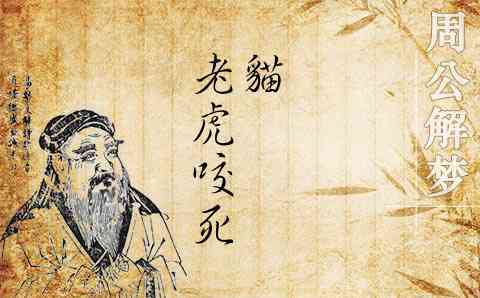 周公解梦
貓
老虎咬死